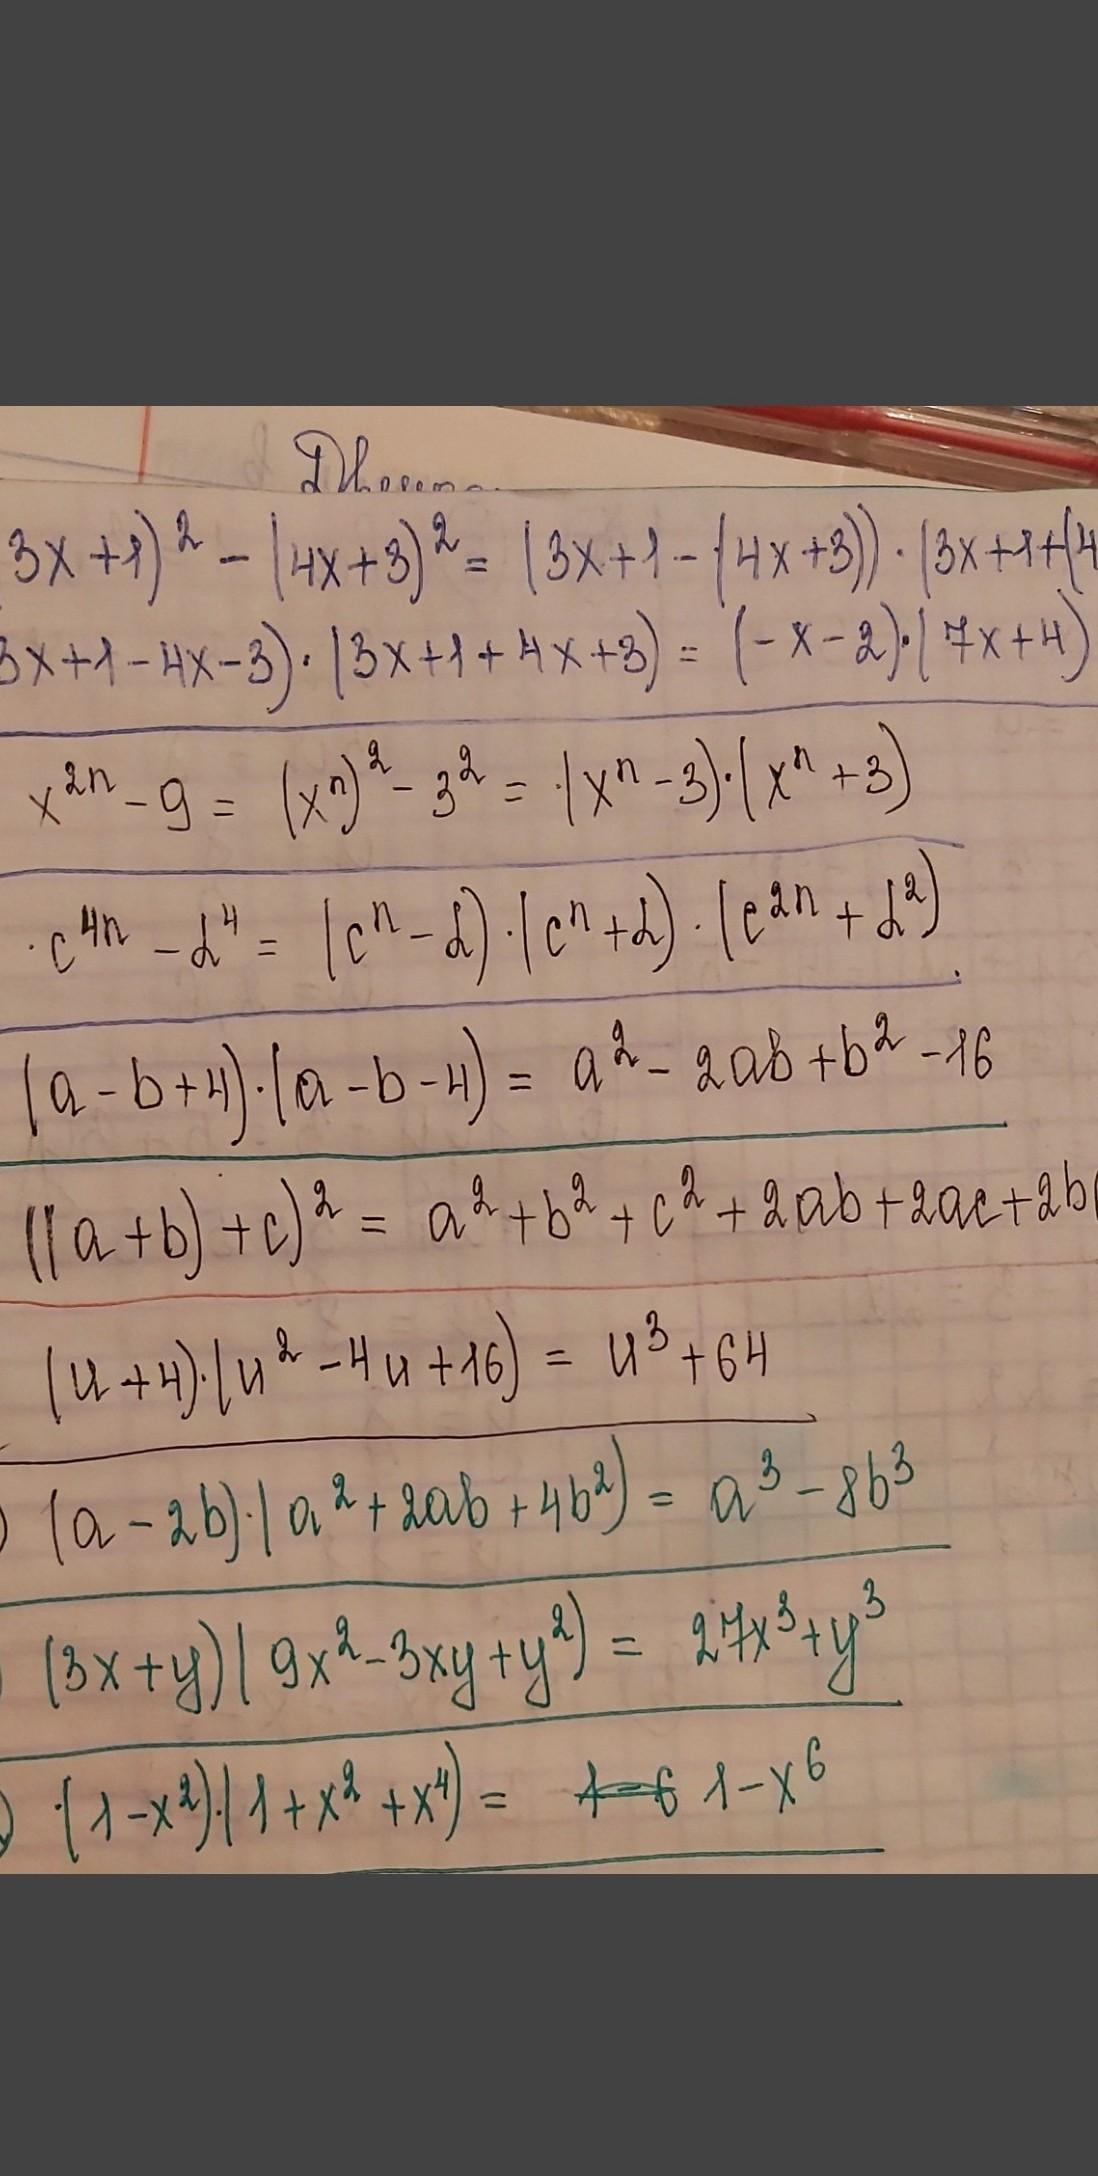 3x+1)² - (4x+3)² = (3x+1-(4x+3))·(3x+1+(4
3x+1-4x-3)·(3x+1+4x+3) = (-x-2)·(7x+4)
x²ⁿ - 9 = (xⁿ)² - 3² = (xⁿ-3)·(xⁿ+3)
c⁴ⁿ - d⁴ = (cⁿ-d)·(cⁿ+d)·(c²ⁿ+d²)
(a-b+4)·(a-b-4) = a² - 2ab + b² - 16
((a+b)+c)² = a² + b² + c² + 2ab + 2ac + 2b
(u+4)·(u²-4u+16) = u³ + 64
) (a-2b)·(a²+2ab+4b²) = a³ - 8b³
(3x+y)(9x²-3xy+y²) = 27x³ + y³
) (1-x²)·(1+x²+x⁴) = 1-x⁶